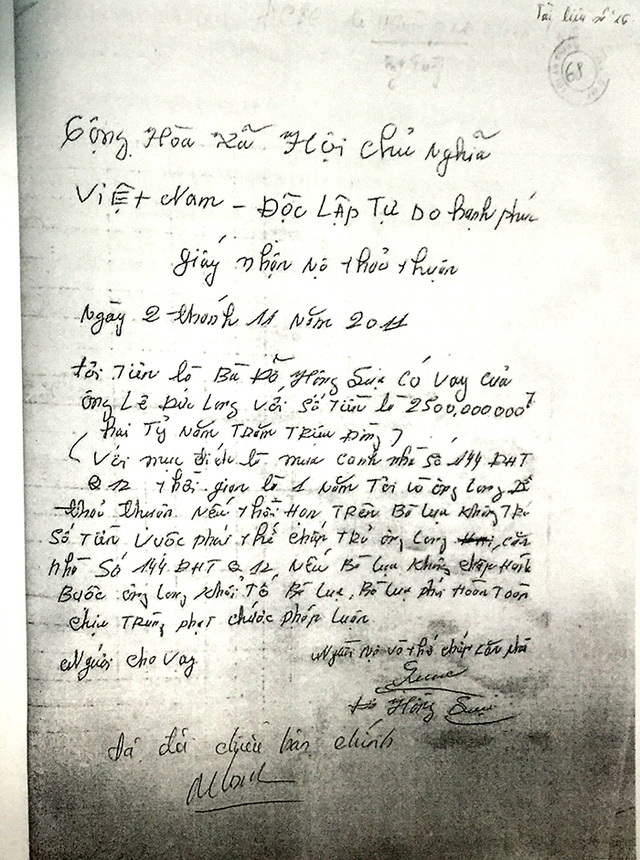 Tài liệu số 16
68
Cộng Hòa Xã Hội chủ nghĩa
Việt Nam - Độc Lập Tự Do hạnh phúc
giấy nhận nợ thoả thuận
Ngày 2 thánh 11 Năm 2011
tôi Tiên là Bà Đỗ Hồng có vay của
ông Lê Đức Long với số Tiền là 2500,000000
hai Tỷ Năm Trăm Triệu Đồng)
(Với mục đích là mua canh nhà số 144 ĐHT
Q12 thời gian là 1 năm Tôi và ông Long
thoả thuận Nếu thời Hạn Trên Bà Lụa không Trả
Số Tiền Vuôc phải thế chấp Trả ông Long căn
nhà Số 144 ĐHT Q12 Nếu Bà Lụa không chấp Hành
Buôc ông Long khởi Tố Bà Lụa, Bà Lụa phải Hoàn Toàn
chịu Trừng phạt chước pháp luôn
Người cho vay
Người nợ và thế chấp căn nhà
Hồng
Đã đối chiếu bản chính